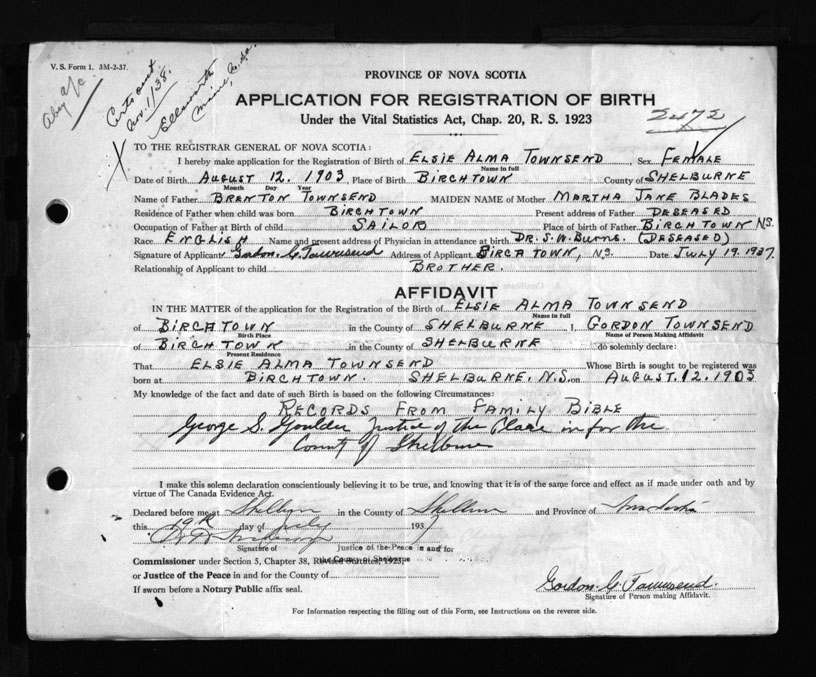 V. S. Form 1. 3M-2-37.
Certs out
Nov. 1/38.
Ellsworth
Maine, U.S.A.
PROVINCE OF NOVA SCOTIA
APPLICATION FOR REGISTRATION OF BIRTH
Under the Vital Statistics Act, Chap. 20, R. S. 1923
2472
TO THE REGISTRAR GENERAL OF NOVA SCOTIA:
I hereby make application for the Registration of Birth of ELSIE ALMA TOWNSEND, Sex FEMALE
Name in full
Date of Birth AUGUST 12. 1903, Place of Birth BIRCHTOWN County of SHELBURNE
Month Day Year
Name of Father BRENTON TOWNSEND MAIDEN NAME of Mother MARTHA JANE BLADES
Residence of Father when child was born BIRCHTOWN Present address of Father DESEASED
Occupation of Father at Birth of child SAILOR Place of birth of Father BIRCHTOWN NS.
Race ENGLISH Name and present address of Physician in attendance at birth DR. S. W. BURNS. (DESEASED)
Signature of Applicant Gordon. G. Townsend Address of Applicant BIRCHTOWN, NS. Date JULY 19. 1937.
Relationship of Applicant to child BROTHER.
AFFIDAVIT
IN THE MATTER of the application for the Registration of the Birth of ELSIE ALMA TOWNSEND
Name in full
of BIRCHTOWN in the County of SHELBURNE I, GORDON TOWNSEND
Birth Place Name of Person Making Affidavit
of BIRCHTOWN in the County of SHELBURNE do solemnly declare:
Present Residence
That ELSIE ALMA TOWNSEND Whose Birth is sought to be registered was
born at BIRCHTOWN. SHELBURNE, N.S. on AUGUST. 12. 1903
My knowledge of the fact and date of such Birth is based on the following Circumstances:
RECORDS FROM FAMILY BIBLE
George S. Goulden Justice of the Place in for the
County of Shelburne
I make this solemn declaration conscientiously believing it to be true, and knowing that it is of the same force and effect as if made under oath and by
virtue of The Canada Evidence Act.
Declared before me at Shelburne in the County of Shelburne and Province of Nova Scotia
this 19th day of July 1937
Signature of Justice of the Peace in and for
the County of Shelburne
Commissioner under Section 5, Chapter 38, Revised Statutes, 1923,
or Justice of the Peace in and for the County of
If sworn before a Notary Public affix seal.
Gordon. G. Townsend.
Signature of Person making Affidavit.
For Information respecting the filling out of this Form, see Instructions on the reverse side.